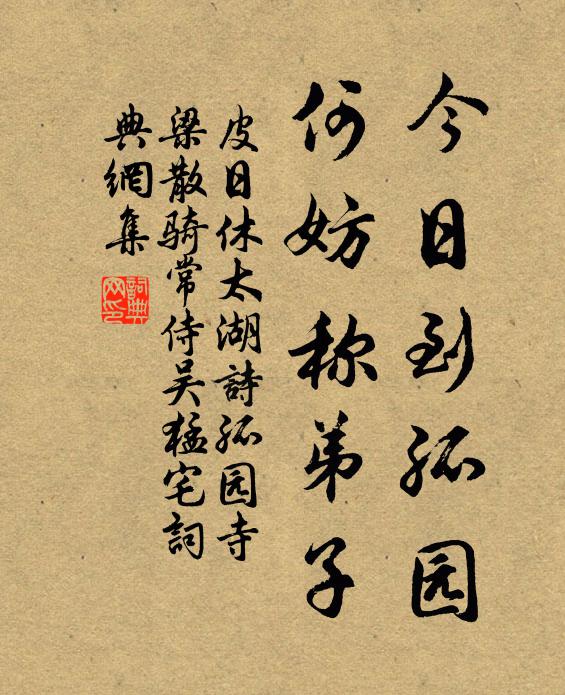 今日到孤园
何妨称弟子
皮日休太湖詩孤园寺
梁散骑常侍吴猛宅詞
典網集
詞典
网印